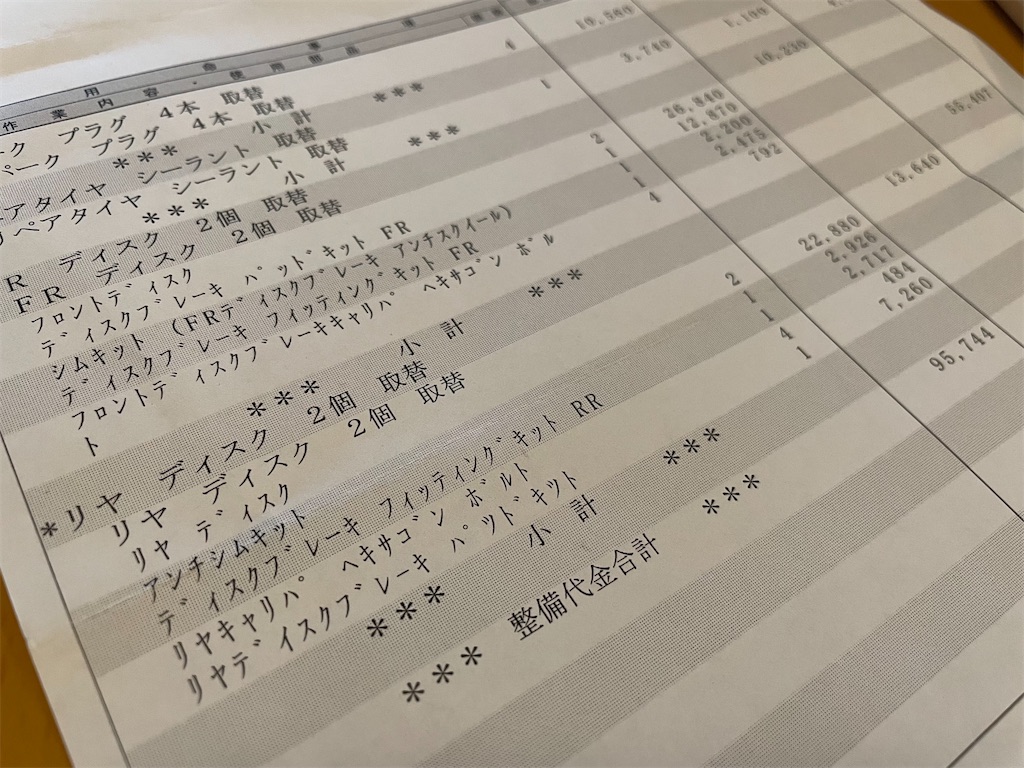 作業内容・使用部品
ーク プラグ 4本 取替
パーク プラグ 4本 取替 4 10,560
*** 小計 ***
ペアタイヤ シーラント 取替
リペアタイヤ シーラント 取替 1 3,740
*** 小計 *** 10,230
R ディスク 2個 取替
FR ディスク 2個 取替
フロントディスク 2 26,840
ディスクブレーキ パッドキット FR 1 12,870
シムキット (FRディスクブレーキ アンチスクイール) 1 2,200
ディスクブレーキ フィッティングキット FR 1 2,475
フロントディスクブレーキキャリパ ヘキサゴン ボル 4 792
ト
*** 小計 *** 55,407
*リヤ ディスク 2個 取替
リヤ ディスク 2個 取替 13,640
リヤ ディスク 2 22,880
アンチシムキット 1 2,926
ディスクブレーキ フィッティングキット RR 1 2,717
リヤキャリパ ヘキサゴン ボルト 4 484
リヤディスクブレーキ パッドキット 1 7,260
*** 小計 ***
*** 整備代金合計 *** 95,744